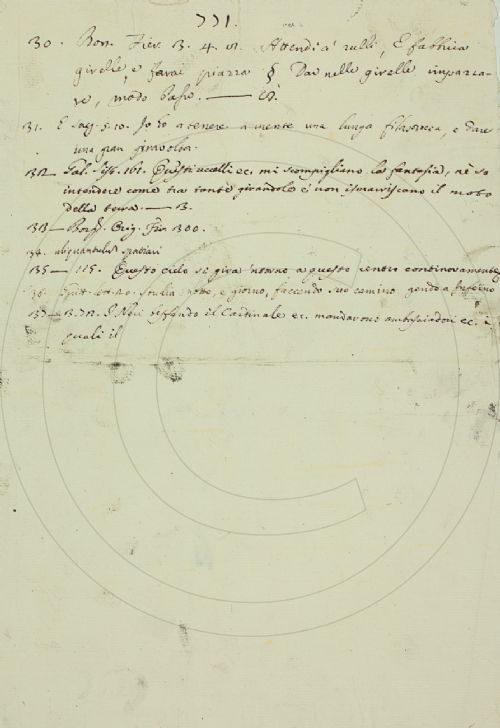 771.
30. Bon. Fier. 3. 4. Attendi a' rulli, E fabbrica
girelle, e farai piazza § Dar nelle girelle impazza-
re, modo basso.
31. E Sag. 5. 10. Io ho a tenere a mente una lunga filastrocca, e dare
una gran giravolta.
32 Gal. Sist. 161. Questi uccelli ec. mi scompigliano la fantasia, nè so
intendere come tra tante girandole e' non ismarriscano il moto
della terra. — B.
33 — Borgh. Orig. Fir. 300.
34. aliquantulum spatiari
35 — 115. Questo cielo si gira intorno a questo centro continovamente
36. notte, e giorno, facendo suo camino
37 — I Neri veggendo il Cardinale ec. mandarono ambasciadori ec. i
quali il